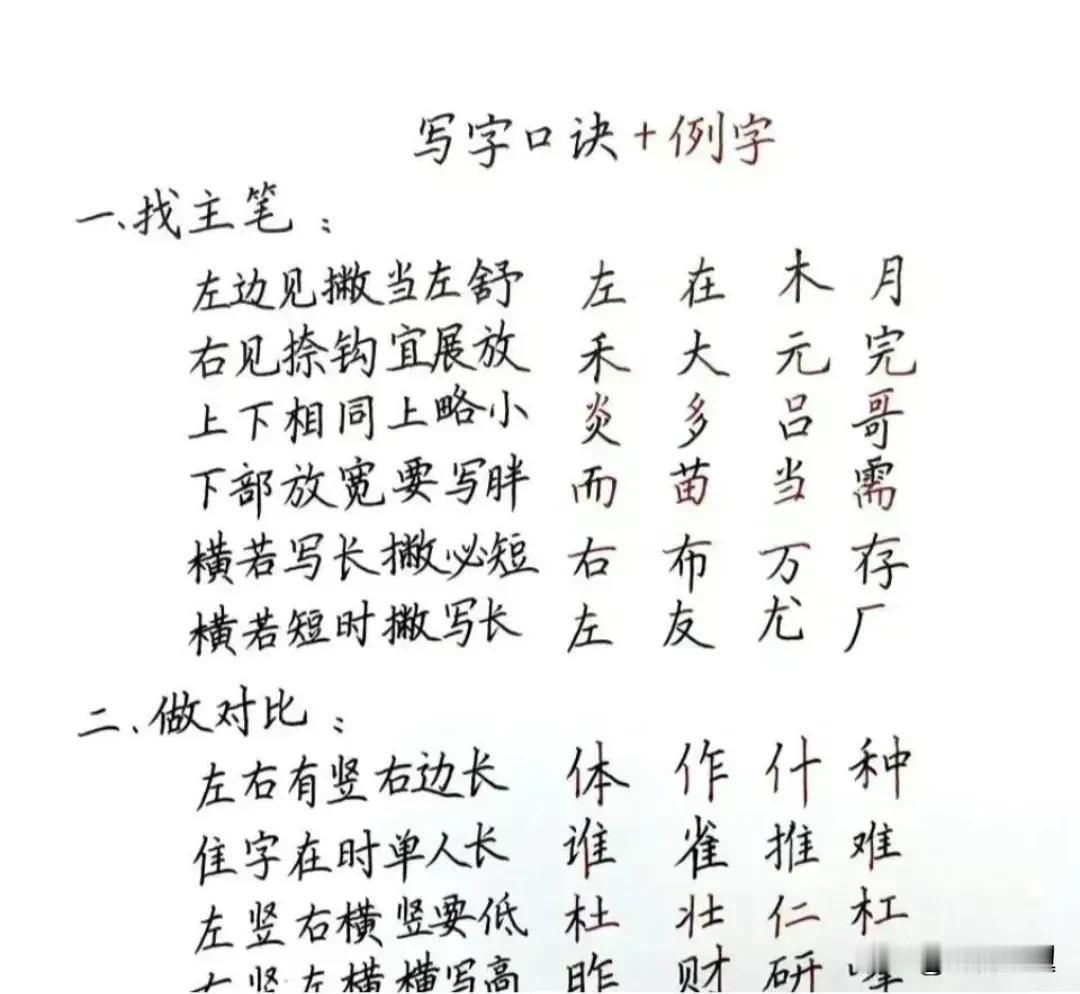 写字口诀+例字
一、找主笔：
左边见撇当左舒 左 在 木 月
右见捺钩宜展放 禾 大 元 完
上下相同上略小 炎 多 吕 哥
下部放宽要写胖 而 苗 当 需
横若写长撇必短 右 布 万 存
横若短时撇写长 左 友 尤 厂
二、做对比：
左右有竖右边长 体 作 什 种
隹字在时单人长 谁 雀 推 难
左竖右横竖要低 杜 壮 仁 杠
右竖左横横写高 昨 财 研